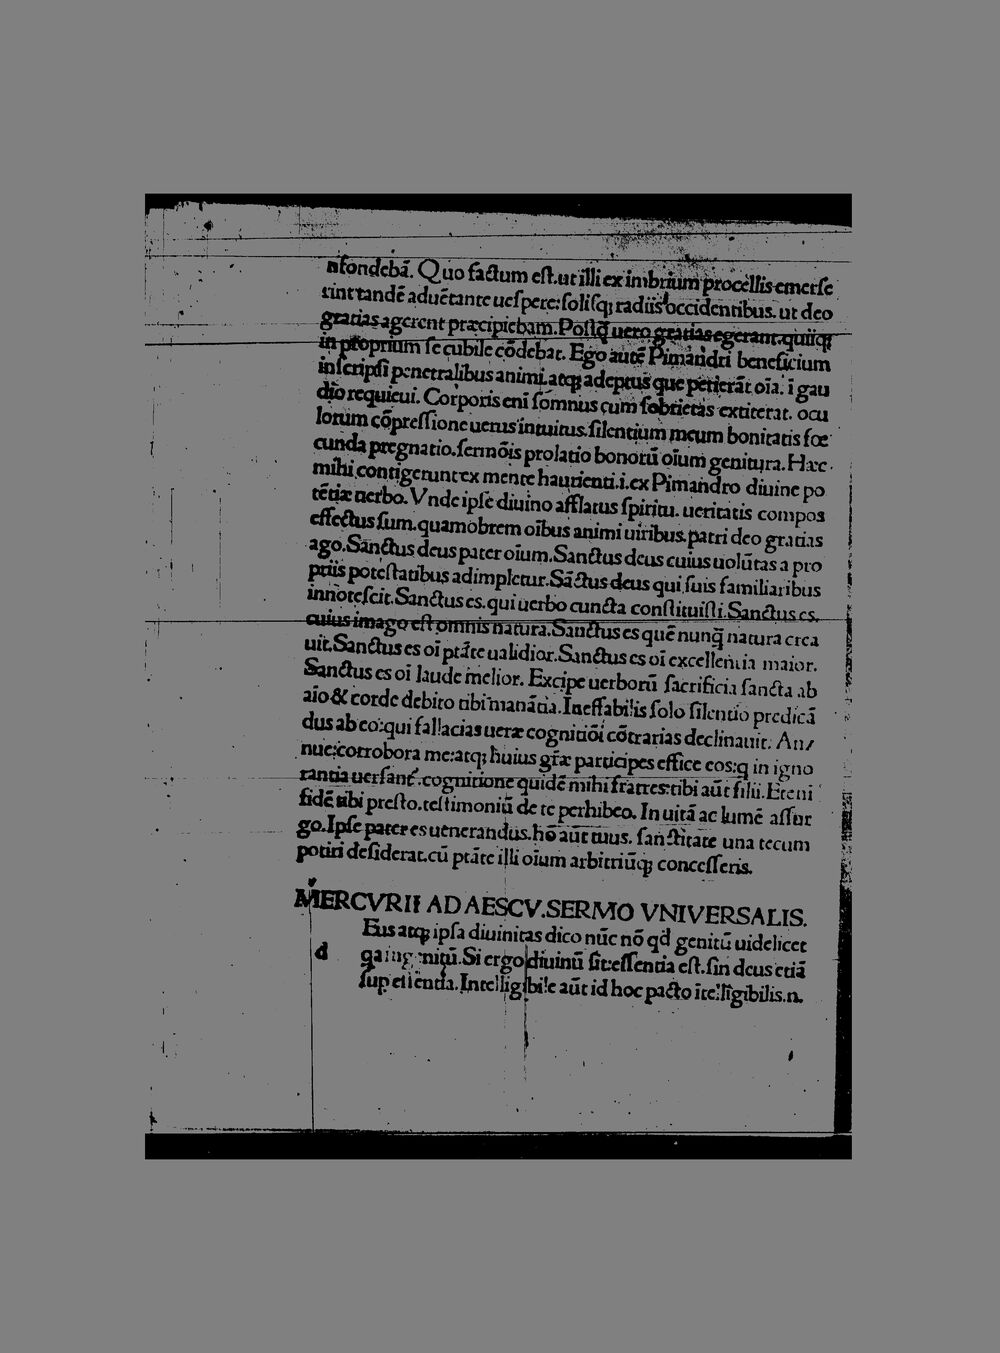 nfondebā. Quo factum est.ut illi ex imbrium procellis emerse
rint tandē aduētante uespere:solisq; radiis occidentibus. ut deo
gratias agerent præcipiebam.Postq̄ uero gratias egerant.quiiq;
in proprium se cubile cōdebat. Ego autē Pimandri beneficium
inscripsi penetralibus animi.atq; adeptus que petierāt oīa. ī gau
dio requieui. Corporis enī somnus cum sobrietas extiterat. ocu
lorum cōpressione uerus intuitus.silentium meum bonitatis foe
cunda pregnatio.sermōis prolatio bonorū oīum genitura. Hæc
mihi contigerunt ex mente haurienti.i.ex Pimandro diuine po
tētiæ uerbo. Vnde ipse diuino afflatus spiritu. ueritatis compos
effectus sum.quamobrem oībus animi uiribus.patri deo gratias
ago.Sanctus deus pater oīum.Sanctus deus cuius uolūtas a pro
priis potestatibus adimpletur.Sāctus deus qui suis familiaribus
innotescit.Sanctus es.qui uerbo cuncta constituisti.Sanctus es.
cuius imago est omnis natura.Sanctus es quē nunq̄ natura crea
uit.Sanctus es oī ptāte ualidior.Sanctus es oī excellentia maior.
Sanctus es oī laude melior. Excipe uerborū sacrificia sancta ab
aīo & corde debito tibi manātia.Ineffabilis solo silentio predicā
dus ab eo:qui fallacias ueræ cognitiōi cōtrarias declinauit. An/
nue:corrobora me:atq; huius græ participes effice eos:q in igno
rantia uersant.cognitione quidē mihi fratres:tibi aūt filii. Eteni
fidē tibi presto.testimoniū de te perhibeo. In uitā ac lumē assur
go.Ipse pater es uenerandus.hō aūt tuus. sanctitate una tecum
potiri desiderat.cū ptāte illi oīum arbitriūq; concesseris.
MERCVRII AD AESCV.SERMO VNIVERSALIS.
d Eus atq; ipsa diuinitas dico nūc nō qd genitū uidelicet
qa ingenitū.Si ergo diuinū sit:essentia est.sin deus etiā
sup essentia.Intelligibile aūt id hoc pacto ītelligibilis.n.